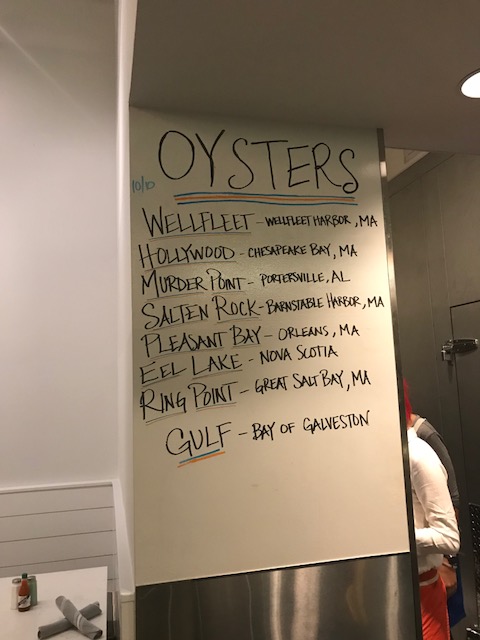 OYSTERS
10/10
WELLFLEET - WELLFLEET HARBOR, MA
HOLLYWOOD - CHESAPEAKE BAY, MA
MURDER POINT - PORTERSVILLE, AL
SALTEN ROCK - BARNSTABLE HARBOR, MA
PLEASANT BAY - ORLEANS, MA
EEL LAKE - NOVA SCOTIA
RING POINT - GREAT SALT BAY, MA
GULF - BAY OF GALVESTON